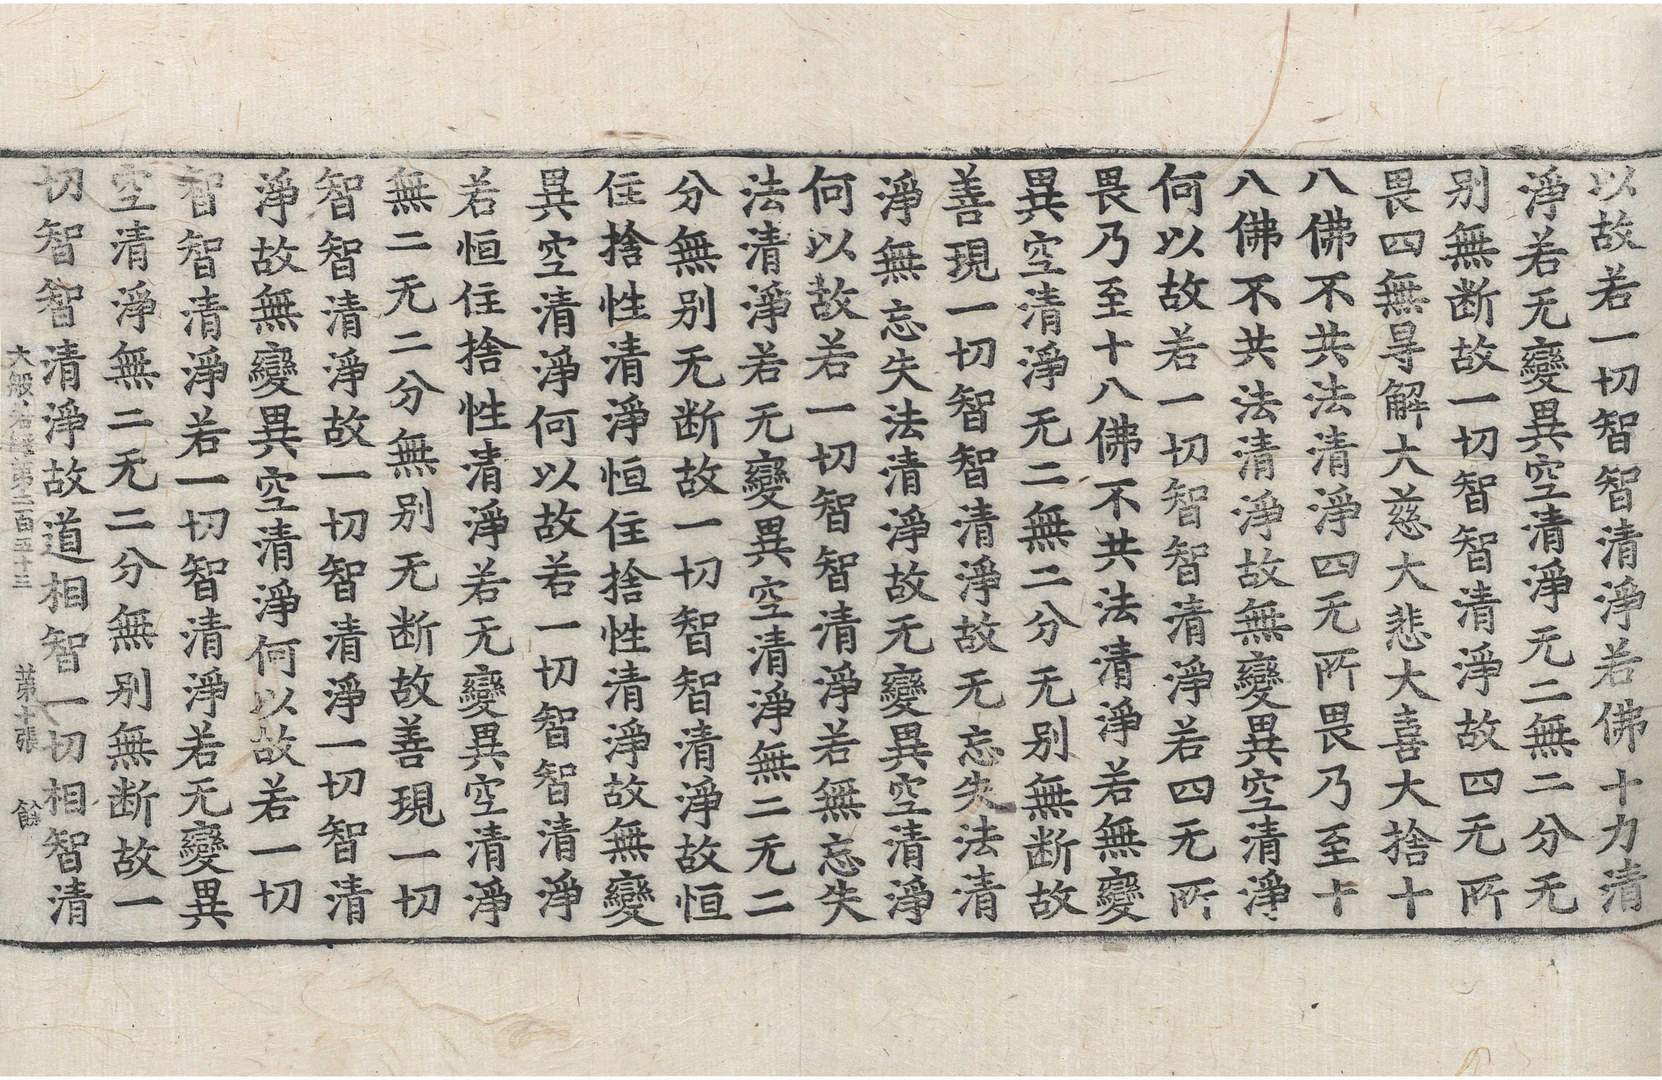 以故若一切智智清淨若佛十力清
淨若无變異空清淨无二無二分无
別無断故一切智智清淨故四无所
畏四無㝵解大慈大悲大喜大捨十
八佛不共法清淨四无所畏乃至十
八佛不共法清淨故無變異空清淨
何以故若一切智智清淨若四无所
畏乃至十八佛不共法清淨若無變
異空清淨无二無二分无别無断故
善現一切智智清淨故无忘失法清
淨無忘失法清淨故无變異空清淨
何以故若一切智智清淨若無忘失
法清淨若无變異空清淨無二无二
分無别无断故一切智智清淨故恒
住捨性清淨恒住捨性清淨故無變
異空清淨何以故若一切智智清淨
若恒住捨性清淨若无變異空清淨
無二无二分無别无断故善現一切
智智清淨故一切智清淨一切智清
淨故無變異空清淨何以故若一切
智智清淨若一切智清淨若无變異
空清淨無二无二分無别無断故一
切智智清淨故道相智一切相智清
大般若經第二百五十三 第十張 餘